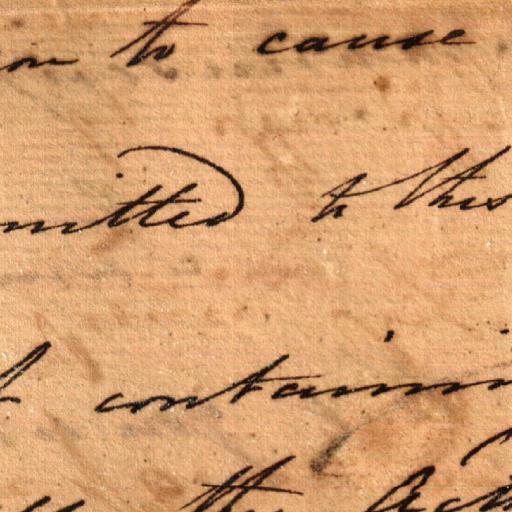 on to cause
mitted to this
containin
the Act